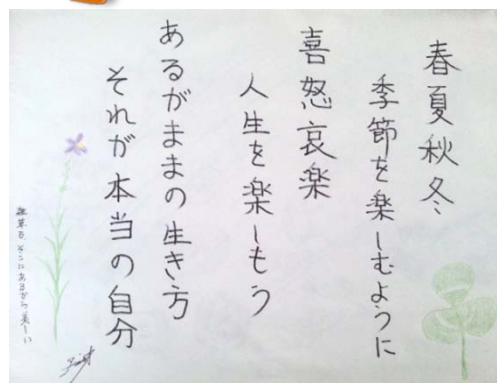 春夏秋冬
季節を楽しむように
喜怒哀楽
人生を楽しもう
あるがままの生き方
それが本当の自分
雑草も そこにあるから美しい